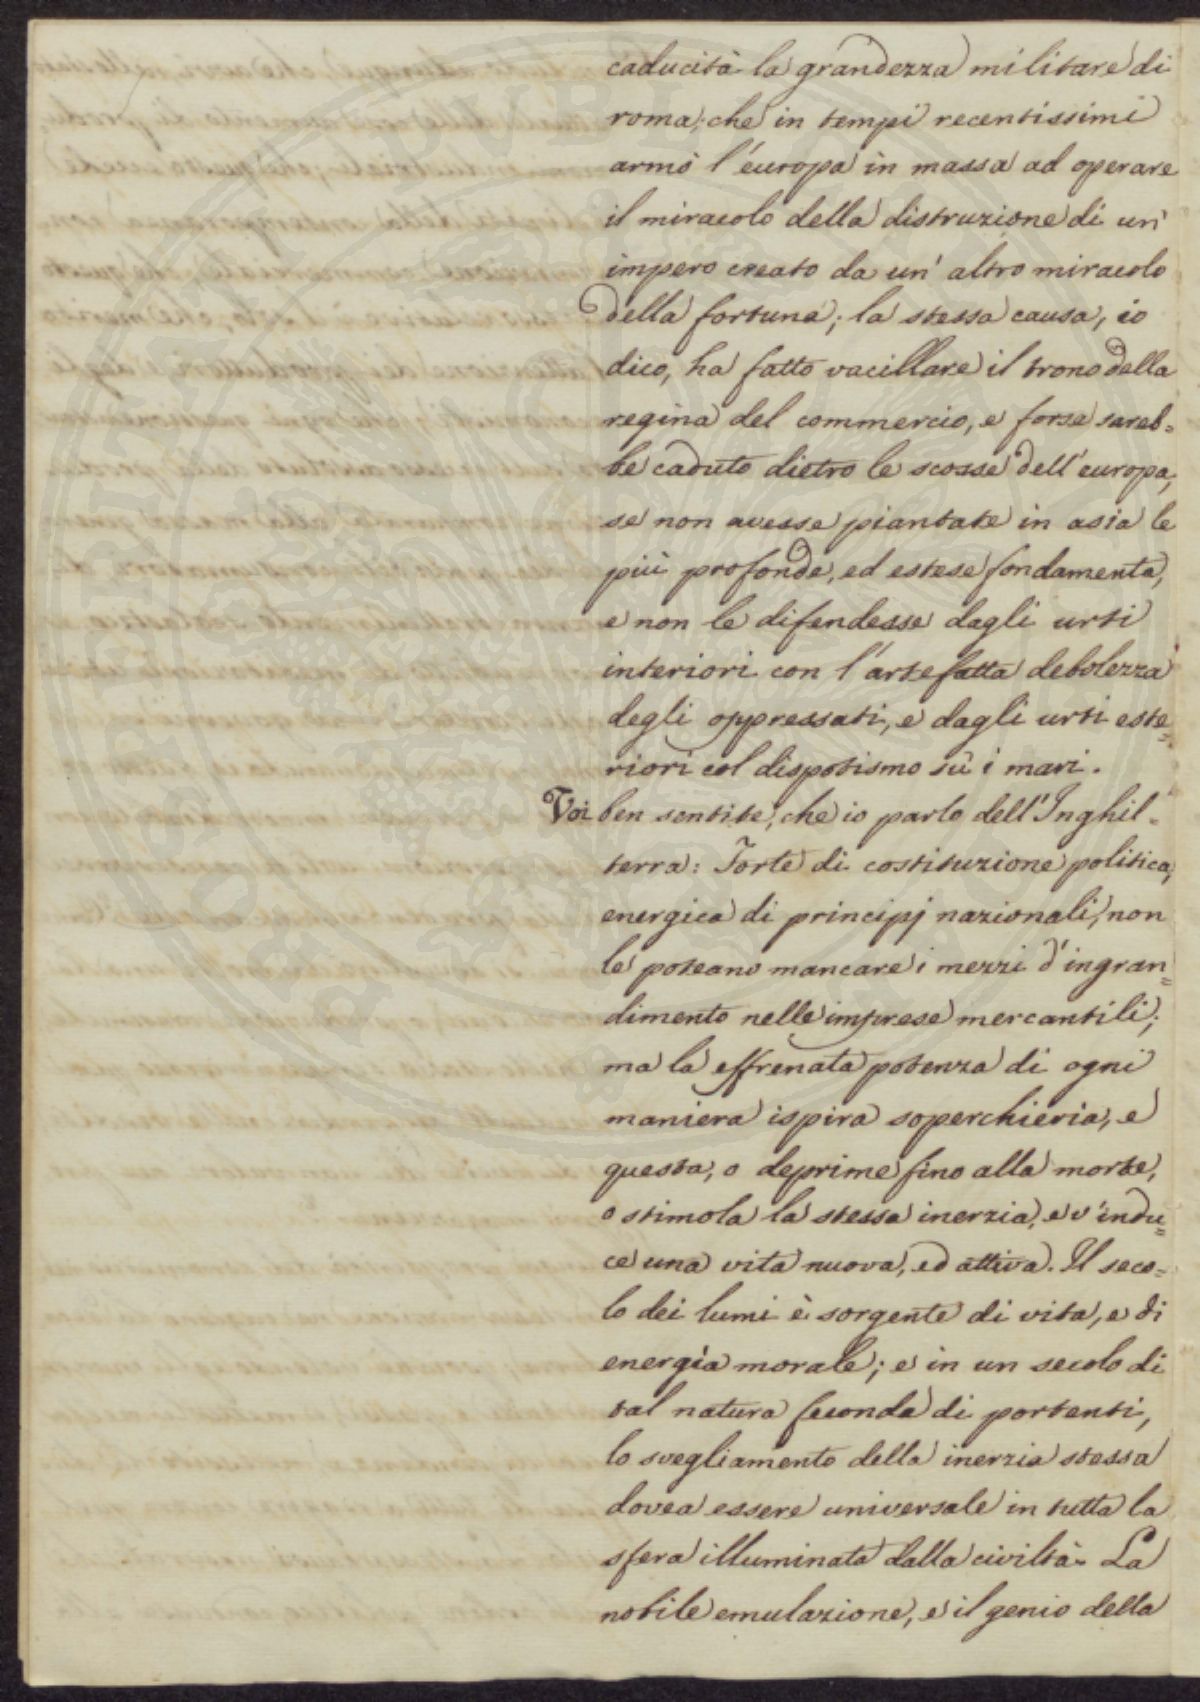 caducità la grandezza militare di
roma; che in tempi recentissimi
armò l'europa in massa ad operare
il miracolo della distruzione di un'
impero creato da un' altro miracolo
della fortuna; la stessa causa, io
dico, ha fatto vacillare il trono della
regina del commercio, e forse sareb=
be caduto dietro le scosse dell'europa,
se non avesse piantate in asia le
più profonde, ed estese fondamenta,
e non le difendesse dagli urti
interiori con l'artefatta debolezza
degli oppressati, e dagli urti este=
riori col dispotismo sù i mari.
Voi ben sentite, che io parlo dell'Inghil=
terra: Forte di costituzione politica,
energica di principj nazionali, non
le poteano mancare i mezzi d'ingran=
dimento nelle imprese mercantili;
ma la effrenata potenza di ogni
maniera ispira soperchieria, e
questa, o deprime fino alla morte,
o stimola la stessa inerzia, e v'indu=
ce una vita nuova, ed attiva. Il seco=
lo dei lumi è sorgente di vita, e di
energia morale; e in un secolo di
tal natura feconda di portenti,
lo svegliamento della inerzia stessa
dovea essere universale in tutta la
sfera illuminata dalla civiltà. La
nobile emulazione, e il genio della